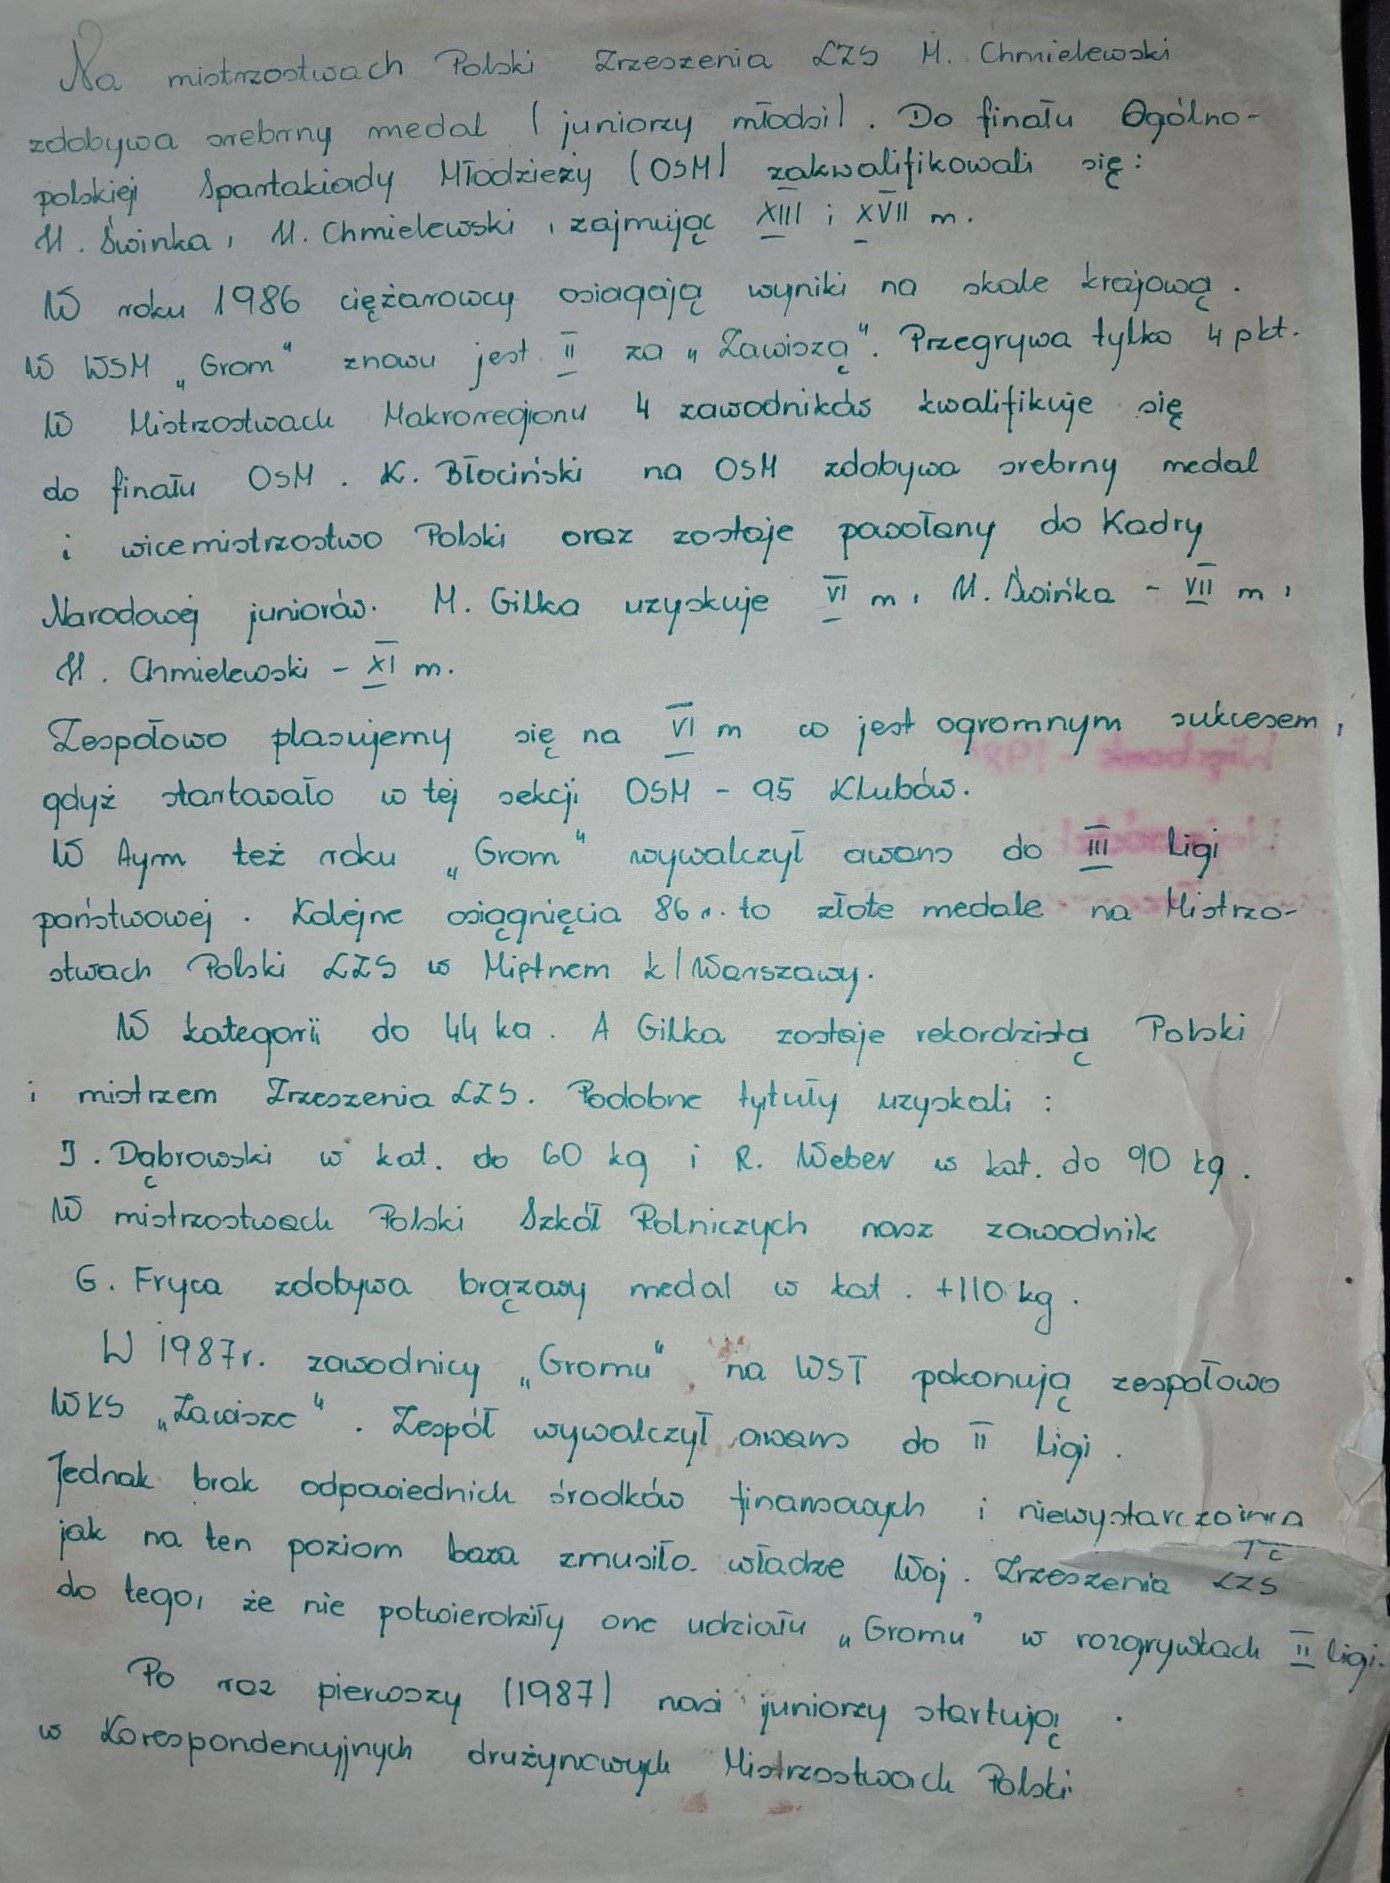 Na mistrzostwach Polski Zrzeszenia LZS M. Chmielewski
zdobywa srebrny medal (juniorzy młodsi). Do finału Ogólno-
polskiej Spartakiady Młodzieży (OSM) zakwalifikowali się:
M. Świnka, M. Chmielewski, zajmując XIII i XVII m.
W roku 1986 ciężarowcy osiągają wyniki na skale krajową.
W WSM „Grom" znowu jest II za „Zawiszą". Przegrywa tylko 4 pkt.
W Mistrzostwach Makroregionu 4 zawodników kwalifikuje się
do finału OSM. K. Błociński na OSM zdobywa srebrny medal
i wicemistrzostwo Polski oraz zostaje powołany do Kadry
Narodowej juniorów. M. Gilka uzyskuje VI m, M. Świńka - VII m,
M. Chmielewski - XI m.
Zespołowo plasujemy się na VI m co jest ogromnym sukcesem,
gdyż startowało w tej sekcji OSM - 95 Klubów.
W tym też roku „Grom" wywalczył awans do III ligi
państwowej. Kolejne osiągnięcia 86 r. to złote medale na Mistrzo-
stwach Polski LZS w Miętnem k/Warszawy.
W kategorii do 44 kg. A Gilka zostaje rekordzistą Polski
i mistrzem Zrzeszenia LZS. Podobne tytuły uzyskali:
J. Dąbrowski w kat. do 60 kg i R. Weber w kat. do 90 kg.
W mistrzostwach Polski Szkół Rolniczych nasz zawodnik
G. Fryca zdobywa brązowy medal w kat. +110 kg.
W 1987r. zawodnicy „Gromu" na WST pokonują zespołowo
WKS „Zawisze". Zespół wywalczył awans do II ligi.
Jednak brak odpowiednich środków finansowych i
jak na ten poziom baza zmusiło władze Woj. Zrzeszenia LZS
do tego, że nie potwierdziły one udziału „Gromu" w rozgrywkach II ligi.
Po raz pierwszy (1987) nasi juniorzy startują
w Korespondencyjnych drużynowych Mistrzostwach Polski